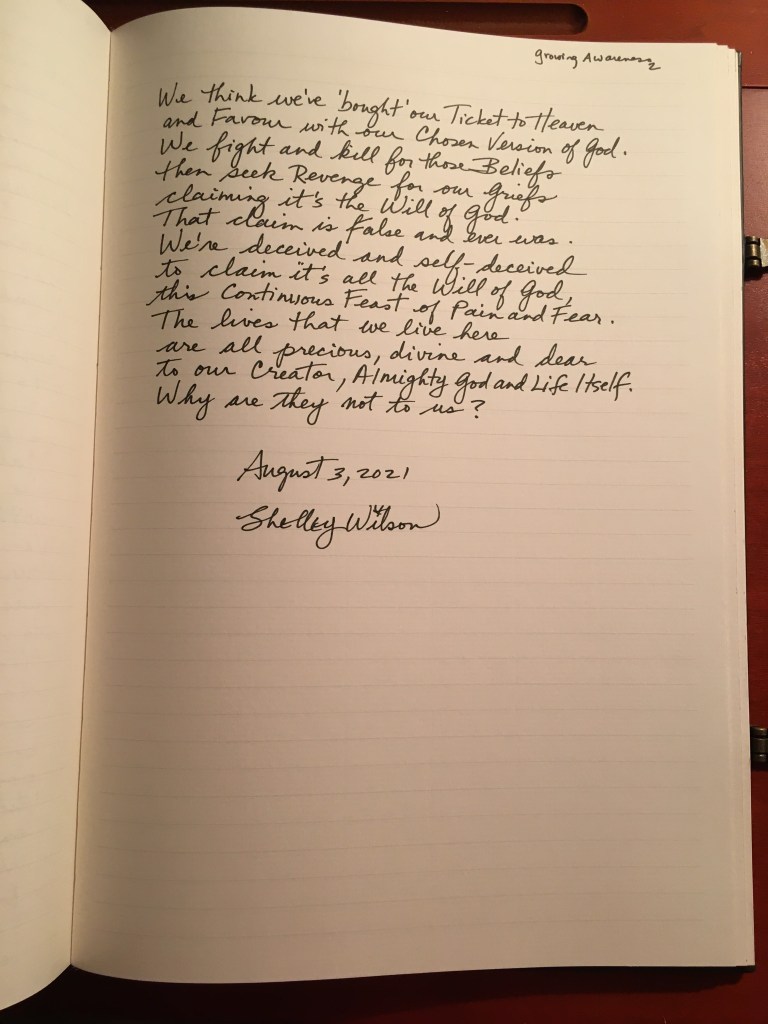 Growing Awareness
2
We think we've 'bought' our Ticket to Heaven
and Favour with our Chosen Version of God.
We fight and kill for those Beliefs
then seek Revenge for our Griefs
claiming it's the Will of God.
That claim is false and ever was.
We're deceived and self-deceived
to claim it's all the Will of God,
this Continuous Feast of Pain and Fear.
The lives that we live here
are all precious, divine and dear
to our Creator, Almighty God and Life Itself.
Why are they not to us?
August 3, 2021
Shelley Wilson